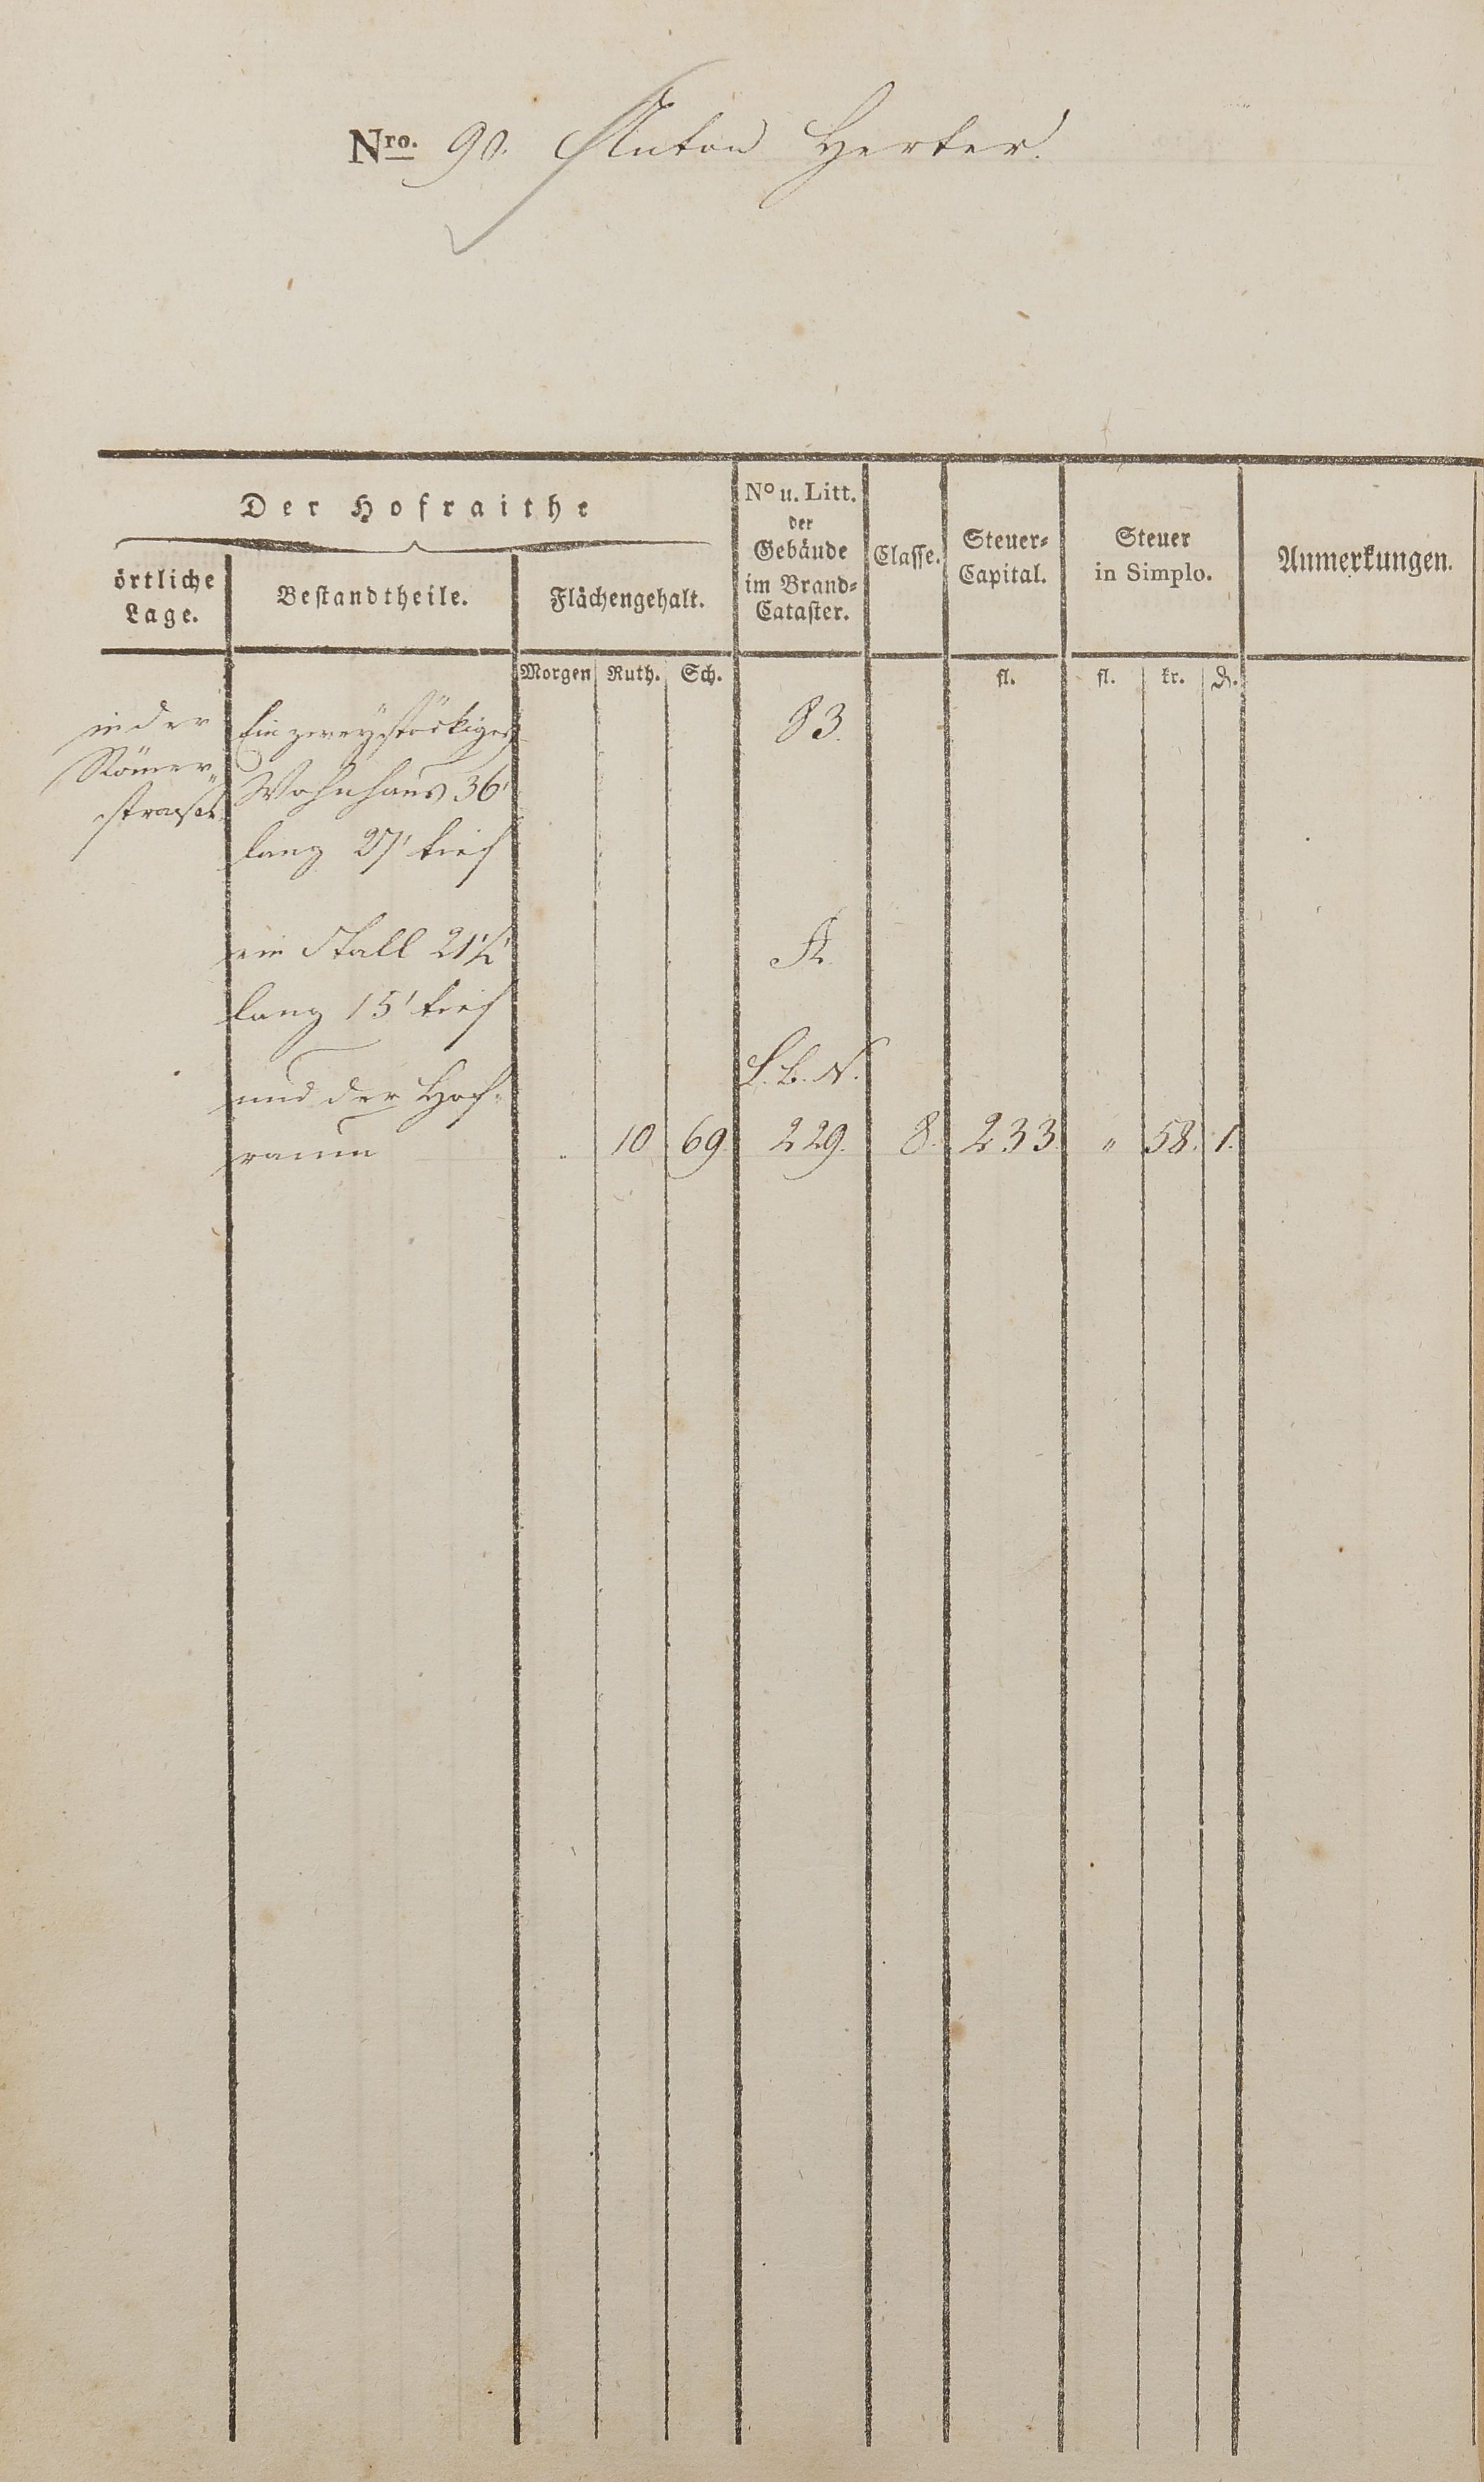 Nro. 90. Anton Herber.
Der Hofraithe
örtliche
Lage.
Bestandtheile.
Flächengehalt.
No u. Litt.
der
Gebäude
im Brand-
Cataster.
Classe.
Steuer-
Capital.
Steuer
in Simplo.
Anmerkungen.
Morgen Ruth. Sch. fl. fl. kr. ₰.
in der
Römer-
strasse
Ein zweystöckiges 83.
Wohnhaus 36'
lang 27' tief
ein Stall 21½' A.
lang 15' tief
und der Hof- L. b. N.
raum 10 69 229. 8. 233 " 58. 1.